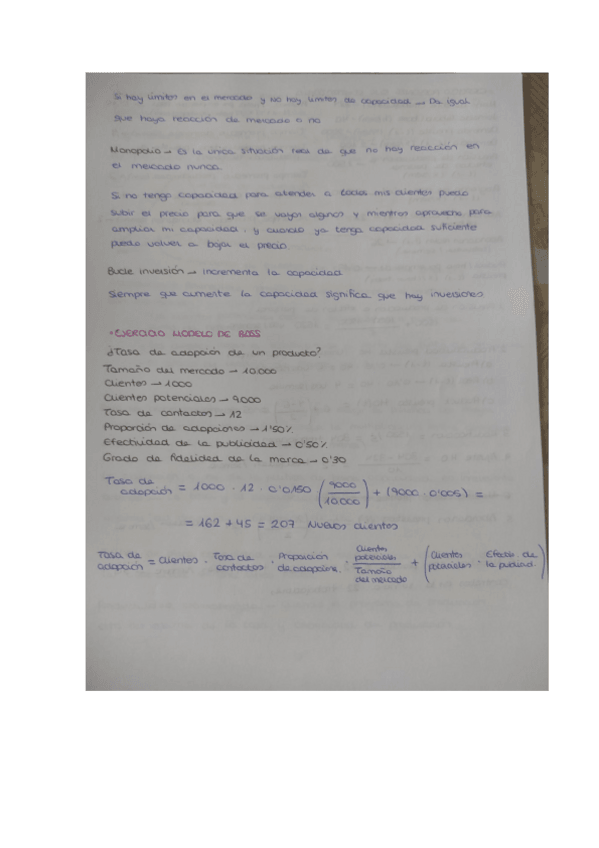 Si hay límites en el mercado y no hay límites de capacidad → Da igual
que haya reacción de mercado o no
Monopolio → Es la única situación real de que no hay reacción en
el mercado nunca.
Si no tengo capacidad para atender a todos mis clientes puedo
subir el precio para que se vayan algunos y mientras aprovecho para
ampliar mi capacidad. y cuando ya tenga capacidad suficiente
puedo volver a bajar el precio.
Bucle inversión → incrementa la capacidad
Siempre que aumente la capacidad significa que hay inversiones
• EJERCICIO MODELO DE BASS
¿Tasa de adopción de un producto?
Tamaño del mercado → 10000
Clientes → 1000
Clientes potenciales → 9000
Tasa de contactos → 12
Proporción de adopciones → 1'50%
Efectividad de la publicidad → 0'50%
Grado de fidelidad de la marca → 0'30
Tasa de adopción = 1000 · 12 · 0'0150 (9000/10000) + (9000 · 0'005) =
= 162 + 45 = 207 Nuevos clientes
Tasa de adopción = Clientes · Tasa de contactos · Proporción de adopciones · Clientes potenciales/Tamaño del mercado + (Clientes potenciales · Efectiv de la publicid.)